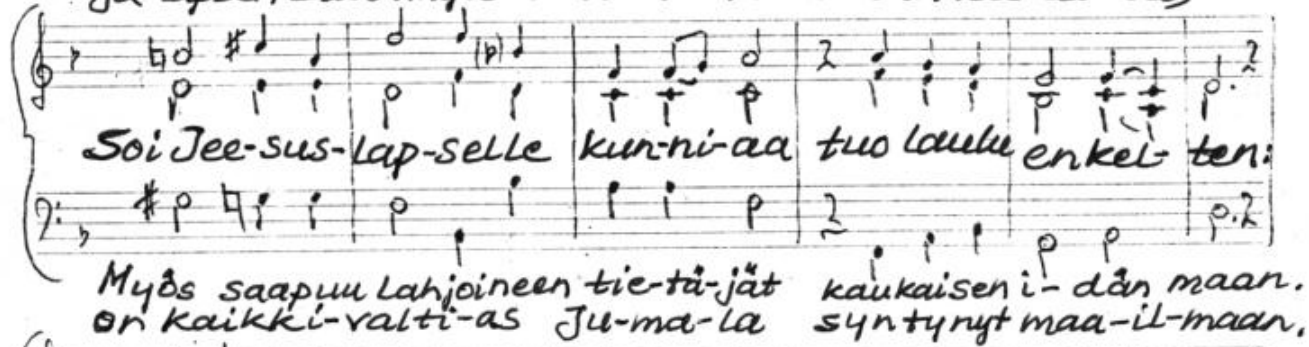 Soi Jee-sus-lap-selle kun-ni-aa tuo laulu enkel-ten:
Myös saapuu lahjoineen tie-tä-jät kaukaisen i-dän maan.
on kaikki-valti-as Ju-ma-la syntynyt maa-il-maan.